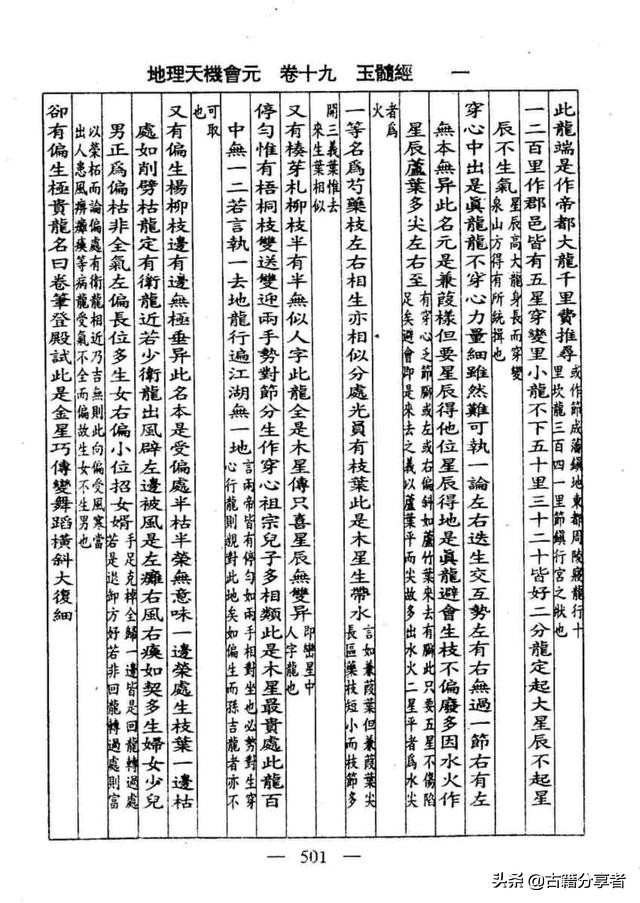 地理天機會元　卷十九　玉髓經　一
此龍端是作帝都大龍千里費推尋或作節成藩鎮地東都周陵寢龍行十里坎龍三百四一里節鎮行宮之狀也
一二百里作郡邑皆有五星穿變里小龍不下五十里三十二十皆好二分龍定起大星辰不起星
辰不生氣星辰高大龍身長而穿變泉山方得有所統攝也
穿心中出是眞龍龍不穿心力量細雖然難可執一論左右迭生交互勢左有右無過一節右有左
無本無异此名元是兼葭樣但要星辰得他位星辰得地是眞龍避會生枝不偏廢多因水火作
星辰蘆葉多尖左右至有穿心之節脚或左或右偏斜如蘆竹葉來去有脚此只要五星不傷陷足矣避會即是來去之義以蘆葉平而尖故多出水火二星平者爲水尖
者爲火
一等名爲芍藥枝左右相生亦相似分處光員有枝葉此是木星生帶水言如兼葭葉但兼葭葉尖長區藥枝短小而枝節多
開三義葉惟去來生葉相似
又有楱芽札柳枝半有半無似人字此龍全是木星傳只喜星辰無變异即巒星中人字龍也
停勻惟有梧桐枝雙送雙迎兩手勢對節分生作穿心祖宗兒子多相類此是木星最貴處此龍百
中無一二若言執一去地龍行遍江湖無一地言兩帝皆有停勻如兩手相對坐也必勢對生穿心行龍則覩對此地矣如偏生而孫吉龍者亦不
可取也
又有偏生楊柳枝邊有邊無極垂异此名本是受偏處半枯半榮無意味一邊榮處生枝葉一邊枯
處如削劈枯龍定有衛龍近若少衛龍出風辟左邊被風是左癱右風右瘓如契多生婦女少兒
男正爲偏枯非全氣左偏長位多生女右偏小位招女婿手足克棹全歸一邊皆是回龍轉過處若是退卸方好若非回龍轉過處則富
以榮柘而論偏處有衛龍相近乃吉無則此向偏受風寒當出人患風痹癱瘓等病龍受氣不全而偏故生女不生男也
卻有偏生極貴龍名曰卷筆登殿試此是金星巧傳變舞蹈橫斜大復細
— 501 —
头条@古籍分享者